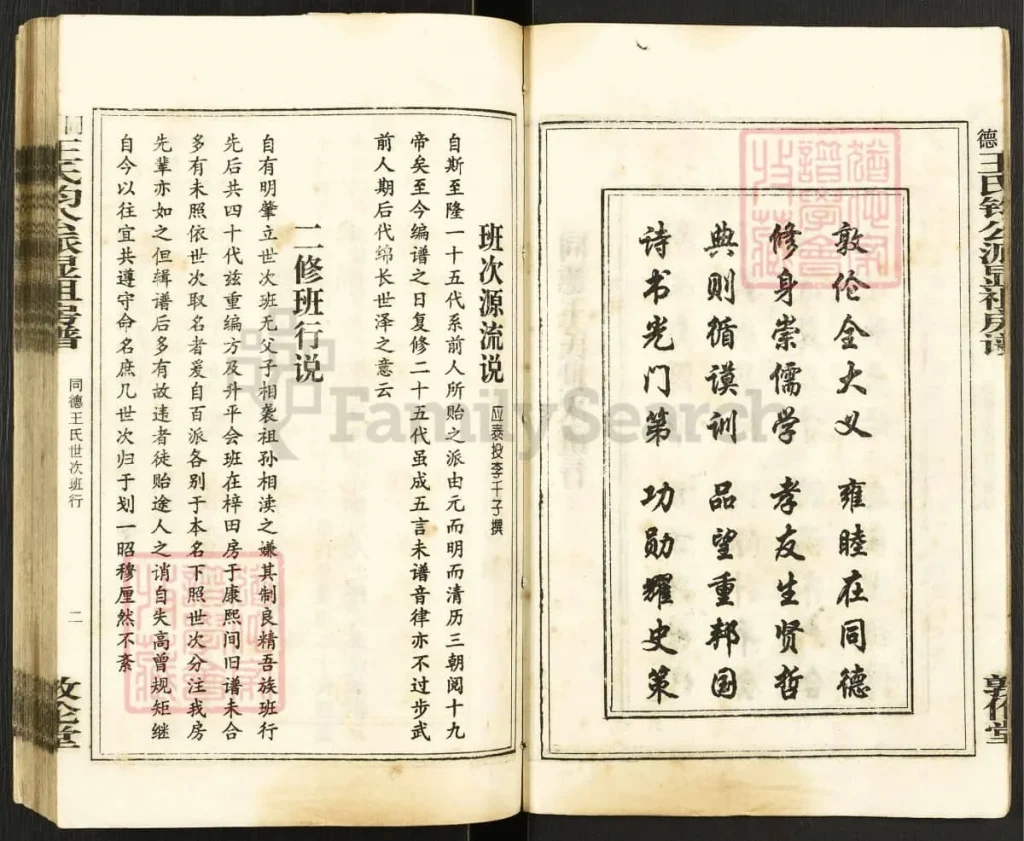 敦伦全大义 雍睦在同德
修身崇儒学 孝友生贤哲
典则循谟训 品望重邦国
诗书光门第 功勋耀史策
班次源流说
自斯至隆一十五代系前人所贻之派由元而明而清历三朝阅十九
帝矣至今编谱之日复修二十五代虽成五言未谱音律亦不过步武
前人期后代绵长世泽之意云
二修班行说
自有明肇立世次班无父子相袭祖孙相渎之嫌其制良精吾族班行
先后共四十代兹重编方及升平会班在梓田房于康熙间旧谱未合
多有未照依世次取名者爰自百派各别于本名下照世次分注我房
先辈亦如之但缉谱后多有故违者徒贻途人之诮自失高曾规矩继
自今以往宜共遵守命名庶几世次归于划一昭穆厘然不紊
同德王氏世次班行
二
敦伦堂
FamilySearch